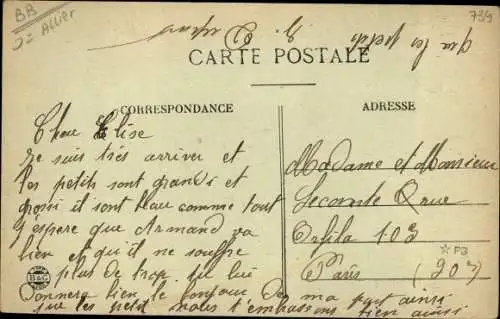 BB
J= Allier
739
que les petits
CARTE POSTALE
CORRESPONDANCE
ADRESSE
Cher Elise
Je suis très arriver et
les petits sont grandi et
grossi il sont beau comme tout
j'espere que Armand va
bien et qu'il ne souffre
plus de trop tu lui
donnera bien le bonjour de ma part ainsi
que les petit nous t'embrassons bien ainsi
Madame et Monsieur
Lecomte Rue
Orfila 103
Paris (20e)
P3
B&G